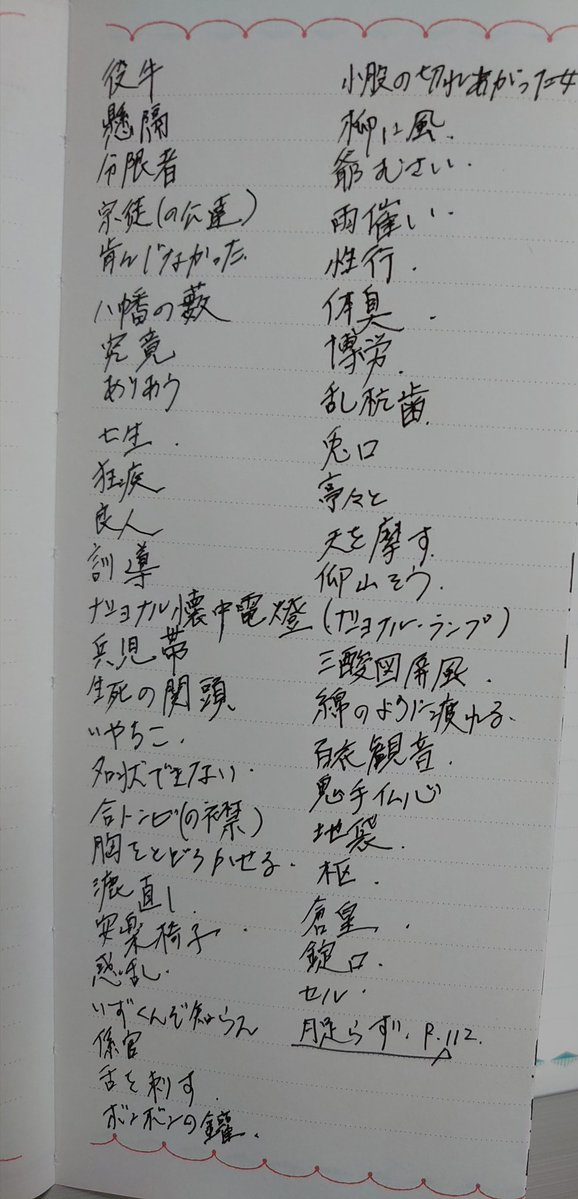 役牛
懸隔
分限者
宗徒(の公達)
肯んじなかった
八幡の藪
究竟
ありわう
七生.
狂疾
良人
訓導
ナショナル懐中電燈(ナショナル・ランプ)
兵児帯
生死の関頭
いやちこ.
名状できない.
合トンビ(の襟)
胸をとどろかせる.
漉直し
安楽椅子.
惑乱.
いずくんぞ知らん
係官
舌を刺す.
ボンボンの罐.
小股の切れあがった女
柳に風.
爺むさい.
雨催い.
性行.
体臭.
博労.
乱杭歯.
兎口
亭々と
天を摩す.
仰山そう.
三酸図屏風.
綿のように疲れる.
白衣観音.
鬼手仏心
地袋.
枢.
倉皇.
錠口.
セル.
月足らず. P.112.